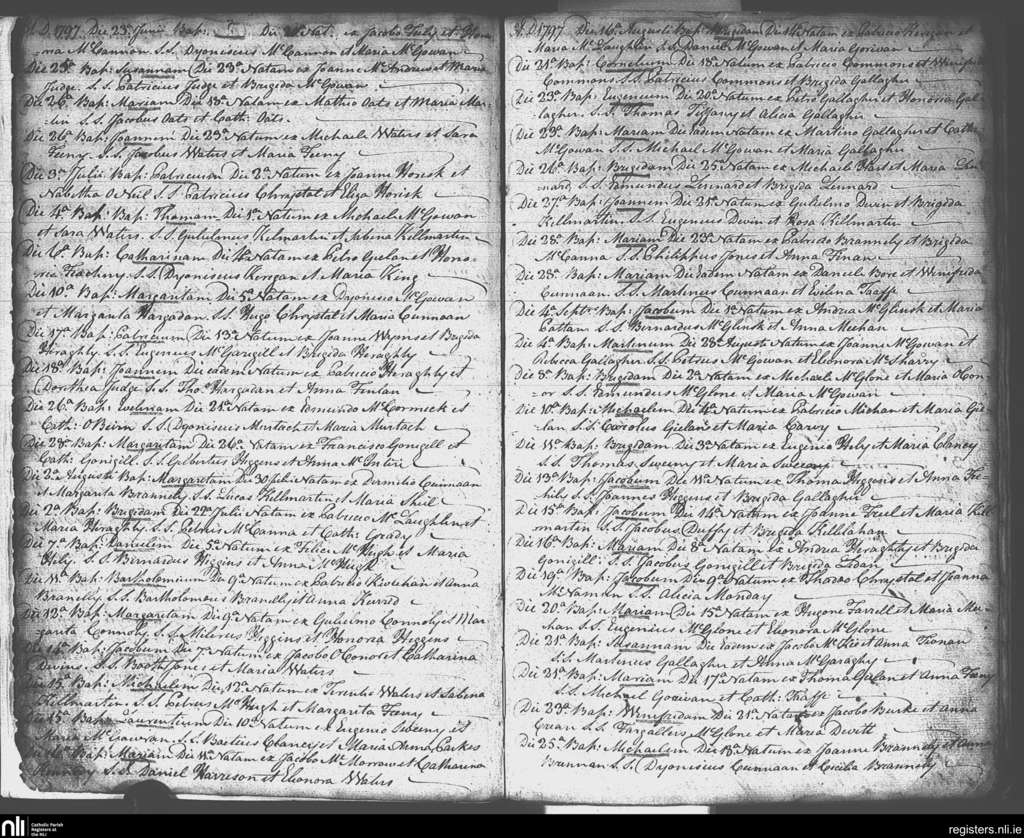 A.D. 1797. Die 23ª Junii Bap: Die 22 Nat. ex Jacobo Tuly et Hono-
ria McCannon. S.S. Dyonisius McCannon et Maria McGowan.
Die 25ª Bap: Susannam Die 23ª Natam ex Joanne McAndrew et Maria
Judge. S.S. Patricius Judge et Brigida McGowan
Die 26ª Bap: Mariam Die 18ª Natam ex Mattio Oats et Maria Mar-
tin S.S. Jacobus Oats et Cath: Oats.
Die 26ª Bap: Joannem Die 23ª Natum ex Michaele Waters et Sara
Feeny. S.S. Jacobus Waters et Maria Feeny
Die 3ª Julii Bap: Patricium Die 2ª Natum ex Joanne Horisk et
O Neil S.S. Patricius Chrystal et Eliza Horisk
Die 4ª Bap: Bap: Thomam Die 1ª Natum ex Michaele McGowan
et Sara Waters. S.S. Gulielmus Kilmartin et Sabina Killmartin
Die 6ª Bap: Catharinam Die 4ª Natam ex Petro Gielan et Hono-
ria S.S. Dyonisius Kerrgan et Maria King
Die 10ª Bap: Margaritam Die 5ª Natam ex Dyonisio McGowan
et Margarita Hargadan. S.S. Hugo Chrystal et Maria Cunnaan
Die 17ª Bap: Patricium Die 13ª Natum ex Joanne Wynn et Brigida
Heraghty S.S. Eugenius McGarrgill et Brigida Heraghty
Die 18ª Bap: Joannem Die eadem Natum ex Patricio Heraghty et
Dorothea Judge S.S. Thos. Hargadan et Anna Feenlan
Die 26ª Bap: Evelinam Die 21ª Natam ex Edmundo McCormick et
Cath: O'Beirn S.S. Dyonisius Murtach et Maria Murtach
Die 28ª Bap: Margaritam Die 26ª Natam ex Francisco Gonigill et
Cath: Gonigill. S.S. Gilbertus Higgins et Anna McIntire
Die 2ª Augusti Bap: Margaritam Die 30 Julii Natam ex Dermitio Cunnaan
et Margarita Brannely S.S. Lucas Killmartin et Maria Shiel
Die 2ª Bap: Brigidam Die 22ª Julii Natam ex Patricio McLaughlin et
Maria Heraghty. S.S. Petrus McCanna et Cath: Grady
Die 7ª Bap: Danielem Die 5ª Natum ex Felice McHugh et Maria
Hely. S.S. Bernardus Higgins et Anna McHugh
Die 11ª Bap: Bartholomeum Die 9ª Natum ex Patricio Kivehan et Anna
Brannelly S.S. Bartholomeus Brannelly et Anna Hurred
Die 12ª Bap: Margaritam Die 9ª Natam ex Gulielmo Connoly et Mar-
garita Connoly S.S. Milerus Higgins et Honoria Higgins
Die 14ª Bap: Jacobum Die 7ª Natum ex Jacobo O'Conor et Catharina
Devins. S.S. Booth Jones et Maria Waters
Die 15ª Bap: Michaelem Die 12ª Natum ex Terentio Waters et Sabina
Killmartin. S.S. Petrus McHugh et Margarita Feeny
Die 15ª Bap: Laurentium Die 10ª Natum ex Eugenio Sweeny et
Maria McGowran S.S. Boetius Clancy et Maria Anna Parkes
Die 16ª Bap: Mariam Die 11ª Natam ex Jacobo McMorrow et Catharina
S.S. Daniel Harrison et Eleonora Waters
A.D. 1797 Die 16ª Augusti Bap: Brigidam Die 14 Natam ex Patricio Kerrgan et
Maria McLaughlin S.S. Daniel McGowan et Maria Goriwan
Die 21ª Bap: Cornelium Die 18ª Natum ex Patricio Commons et Winifrida
Commons S.S. Patricius Commons et Brigida Gallagher
Die 23ª Bap: Eugenium Die 20ª Natum ex Petro Gallagher et Honoria Gal-
lagher. S.S. Thomas Tiffany et Alicia Gallagher
Die 23ª Bap: Mariam Die eadem Natam ex Martino Gallagher et Cath:
McGowan S.S. Michael McGowan et Maria Gallagher
Die 26ª Bap: Brigidam Die 25ª Natam ex Michaele Hart et Maria Len-
nard, S.S. Edmundus Lennard et Brigida Lennard
Die 27ª Bap: Joannem Die 21ª Natum ex Gulielmo Devin et Brigida
Killmartin. S.S. Eugenius Devin et Rosa Killmartin
Die 28ª Bap: Mariam Die 23ª Natam ex Patricio Brannely et Brigida
McCanna S.S. Philippus Jones et Anna Finan
Die 28ª Bap: Mariam Die eadem Natam ex Daniele Bore et Winifrida
Cunnaan. S.S. Martinus Cunnaan et Evelina Taaffe
Die 4ª Septr. Bap: Jacobum Die 1ª Natum ex Andrea McGlinsk et Maria
Pattan S.S. Bernardus McGlinsk et Anna Meehan
Die 4ª Bap: Martinum Die 28ª Augusti Natum ex Joanne McGowan et
Rebecca Gallagher S.S. Petrus McGowan et Eleonora McSharry
Die 8ª Bap: Brigidam Die 2ª Natam ex Michaele McGlone et Maria O'Con-
or S.S. Edmundus McGlone et Maria McGowan
Die 10ª Bap: Michaelem Die 4ª Natum ex Patricio Michan et Maria Gie-
lan. S.S. Carolus Gielan et Maria Carvy
Die 11ª Bap: Brigidam Die 3ª Natam ex Eugenio Hely et Maria Clancy
S.S. Thomas Sweeny et Maria Sweeny
Die 13ª Bap: Jacobum Die 11ª Natum ex Thoma Higgins et Anna Fe-
hily S.S. Joannes Higgins et Brigida Gallagher
Die 15ª Bap: Jacobum Die 14ª Natum ex Joanne Feel et Maria Kill-
martin S.S. Jacobus Duffy et Brigida Killelahan
Die 16ª Bap: Mariam Die 8ª Natam ex Andrea Heraghty et Brigida
Gonigill. S.S. Jacobus Gonigill et Brigida Lidan
Die 19ª Bap: Jacobum Die 9ª Natum ex Thadeo Chrystal et Joanna
McNamara S.S. Alicia Monday
Die 20ª Bap: Mariam Die 15ª Natam ex Hugone Farrell et Maria Mee-
han S.S. Eugenius McGlone et Eleonora McGlone
Die 21ª Bap: Susannam Die eadem ex Jacobo McKee et Anna Fionan
S.S. Martinus Gallagher et Anna McGaraghy
Die 21ª Bap: Mariam Die 17ª Natam ex Thoma Gielan et Anna Feeny
S.S. Michael Goriwan et Cath: Taaffe
Die 23ª Bap: Winifridam Die 21ª Natam ex Jacobo Burke et Anna
Crean S.S. Fargallus McGlone et Maria Devitt
Die 25ª Bap: Michaelem Die 18ª Natum ex Joanne Brannely et Anna
Brannan S.S. Dyonisius Cunnaan et Cecilia Brannely
nli
Catholic Parish
Registers at
the NLI
registers.nli.ie